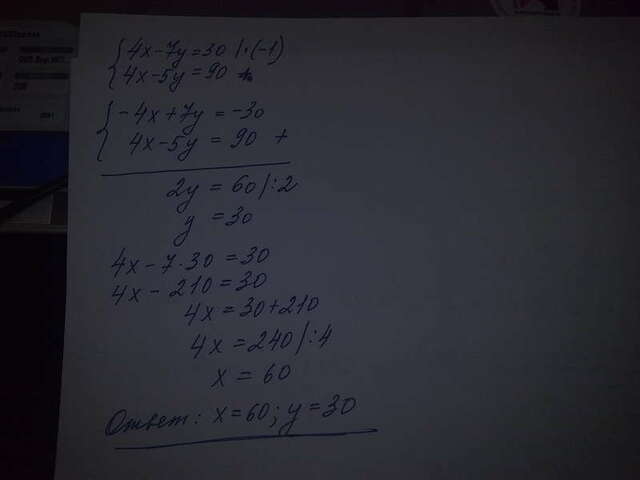 { 4x-7y=30 |·(-1)
4x-5y=90
{ -4x+7y=-30
4x-5y=90 +
2y=60 |:2
y=30
4x-7·30=30
4x-210=30
4x=30+210
4x=240 |:4
x=60
Ответ: x=60; y=30